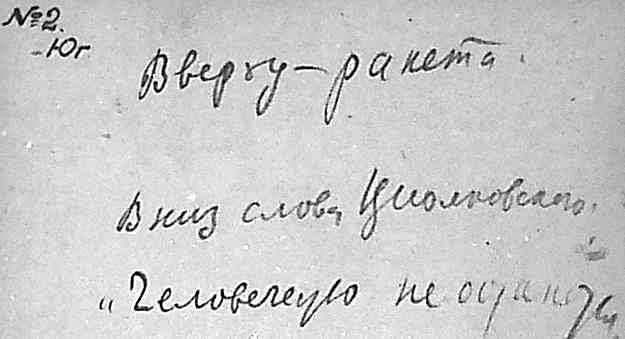 №2.
-Юг
Вверху – ракета.
Вниз слова Циолковского:
„Человечество не останется